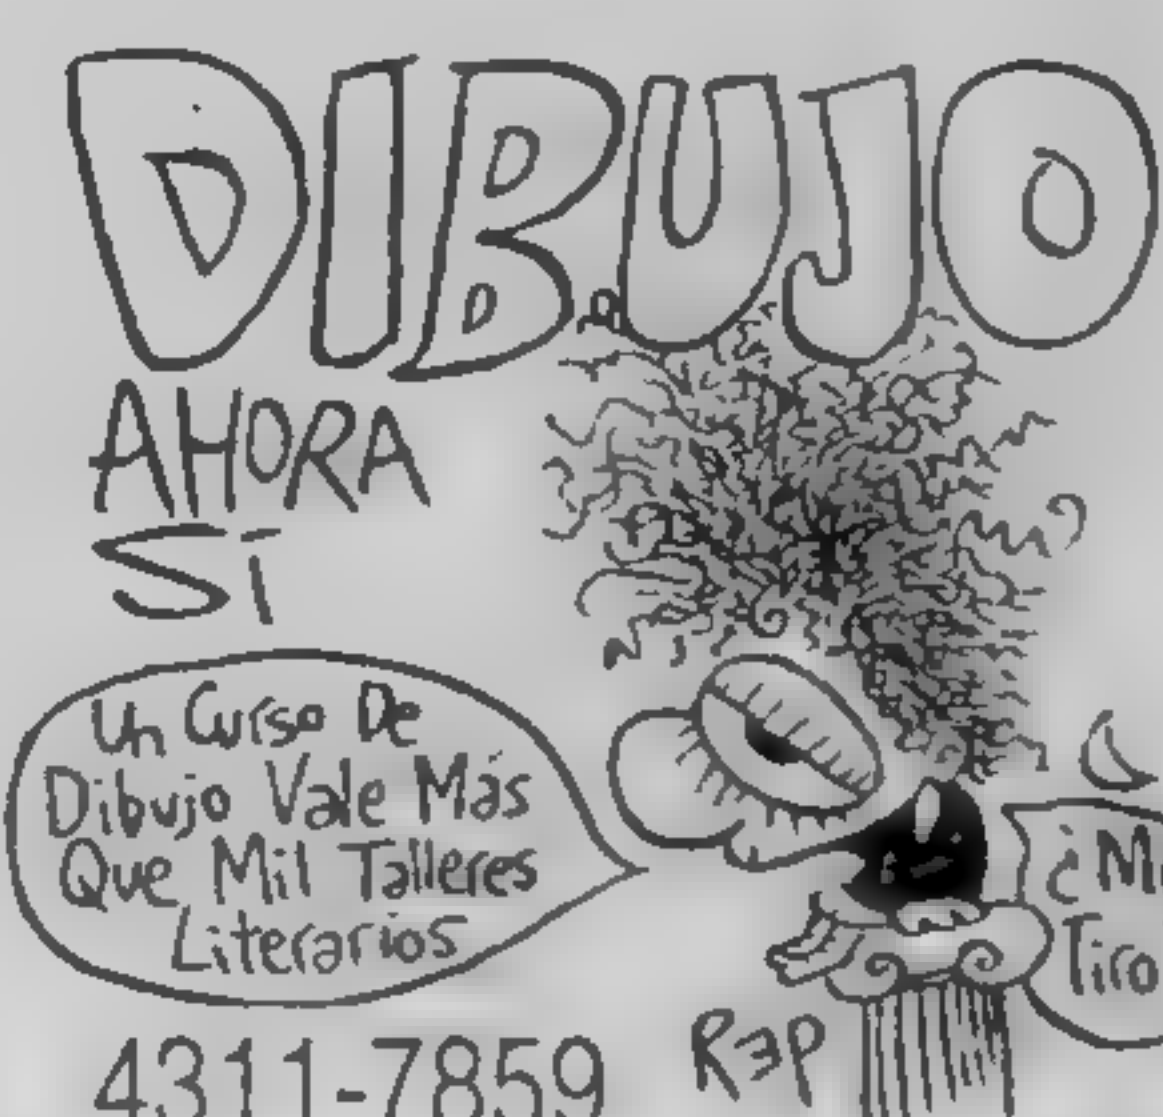 DIBUJO
AHORA
SÍ
Un Curso De
Dibujo Vale Más
Que Mil Talleres
Literarios
Tiro
REP
4311-7859